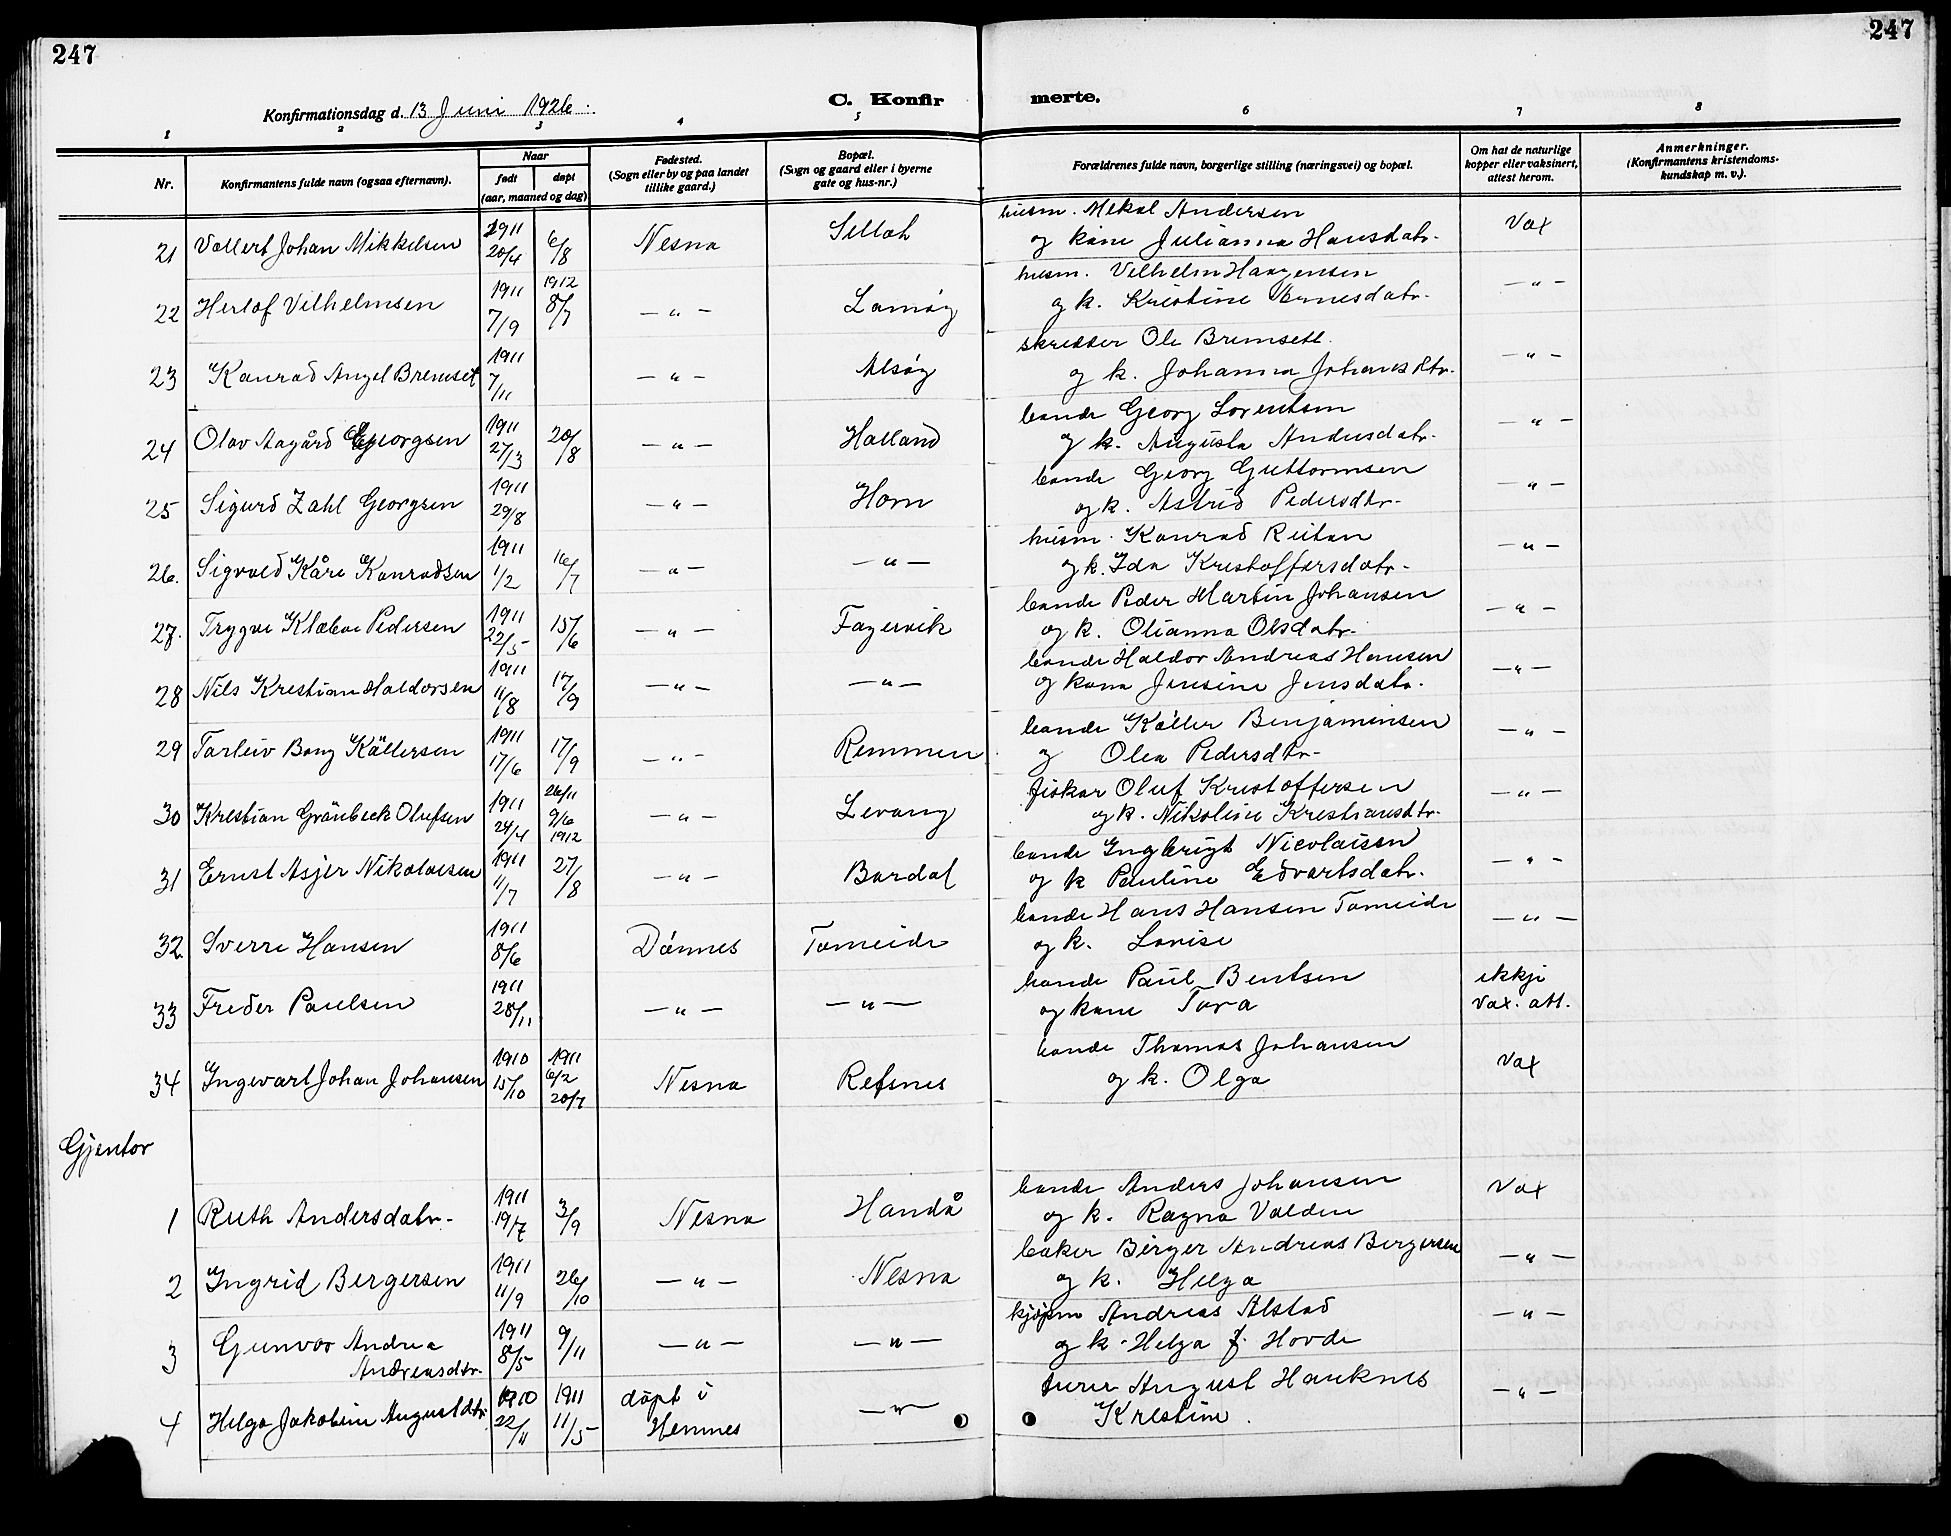 247
247
Konfirmationsdag d. 13 Juni 1926.
C. Konfir
merte.
1 2 3 4 5 6 7 8
Nr. Konfirmantens fulde navn (ogsaa efternavn). Naar født døpt (aar, maaned og dag) Fødested. (Sogn eller by og paa landet tillike gaard.) Bopæl. (Sogn og gaard eller i byerne gate og hus-nr.) Forældrenes fulde navn, borgerlige stilling (næringsvei) og bopæl. Om hat de naturlige kopper eller vaksinert, attest herom. Anmerkninger. (Konfirmantens kristendoms-kundskap m. v.).
21 Vallert Johan Mikkelsen 1911 20/4 6/8 Nesna husm. Mikal Andersen Vax
og kone Julianna Hansdatr.
22 Herlof Vilhelmsen 1911 7/9 1912 8/7 —"— Lamøy husm. Vilhelm —"—
og k. Kristine Arnesdatr.
23 Konrad Angel Bremset 1911 7/11 —"— Alsøy skredder Ole Bremsett. —"—
og k. Johanna Johansdtr.
24 Olav Aagård Georgsen 1911 27/3 20/8 —"— Halland bonde Georg Lorentsen —"—
og k. Augusta Andersdatr.
25 Sigurd Zahl Georgsen 1911 29/8 —"— Horn bonde Georg Guttormsen —"—
og k. Astrid Pedersdtr.
26. Sigvald Kåre Konradsen 1911 1/2 16/7 —"— —"— husm. Konrad Reitan —"—
og k. Ida Kristoffersdatr.
27. Trygve Klæboe Pedersen 1911 22/5 15/6 —"— Fagervik bonde Peder Martin Johansen —"—
og k. Olianna Olsdatr.
28 Nils Kristian Haldorsen 1911 11/8 17/9 —"— —"— bonde Haldor Andreas Hansen —"—
og kona Jensine Jensdatr.
29 Torleiv Bang Källersen 1911 17/6 17/9 —"— Remmen bonde Käller Benjaminsen —"—
og Olea Pedersdtr.
30 Kristian Grönbeck Olufsen 1911 24/4 26/11 9/6 1912 —"— Levang fiskar Oluf Kristoffersen —"—
og k. Nikoline Kristiansdtr.
31 Ernst Asjer Nikolaisen 1911 11/7 27/8 —"— Bardal bonde Ingbrigt Nicolaisen —"—
og k Pauline Edvartsdatr.
32. Sverre Hansen 1911 8/6 Dönnes Tomeide bonde Hans Hansen Tomeide —"—
og k. Lovise
33 Freder Paulsen 1911 28/11 —"— —"— bonde Paul Bentsen ikkje
og kone Tora Vax. att.
34 Ingevart Johan Johansen 1910 15/10 1911 6/2 20/7 Nesna Refsnes bonde Thomas Johansen Vax
og k. Olga
Gjentor
1 Ruth Andersdatr. 1911 19/7 3/9 Nesna Handå bonde Anders Johansen Vax
og k. Ragna Valden
2 Ingrid Bergersen 1911 11/9 26/10 —"— Nesna baker Birger Andreas Bergersen —"—
og k. Helga
3 Gunvor Andrea 1911 8/5 9/11 —"— —"— kjøpm Andreas Alstad —"—
Andreasdtr. og k. Helga f. Hovde
4 Helga Jakobine Augustdtr 1910 22/11 1911 11/5 döpt i —"— August Hauknes —"—
Hemnes Kristine.